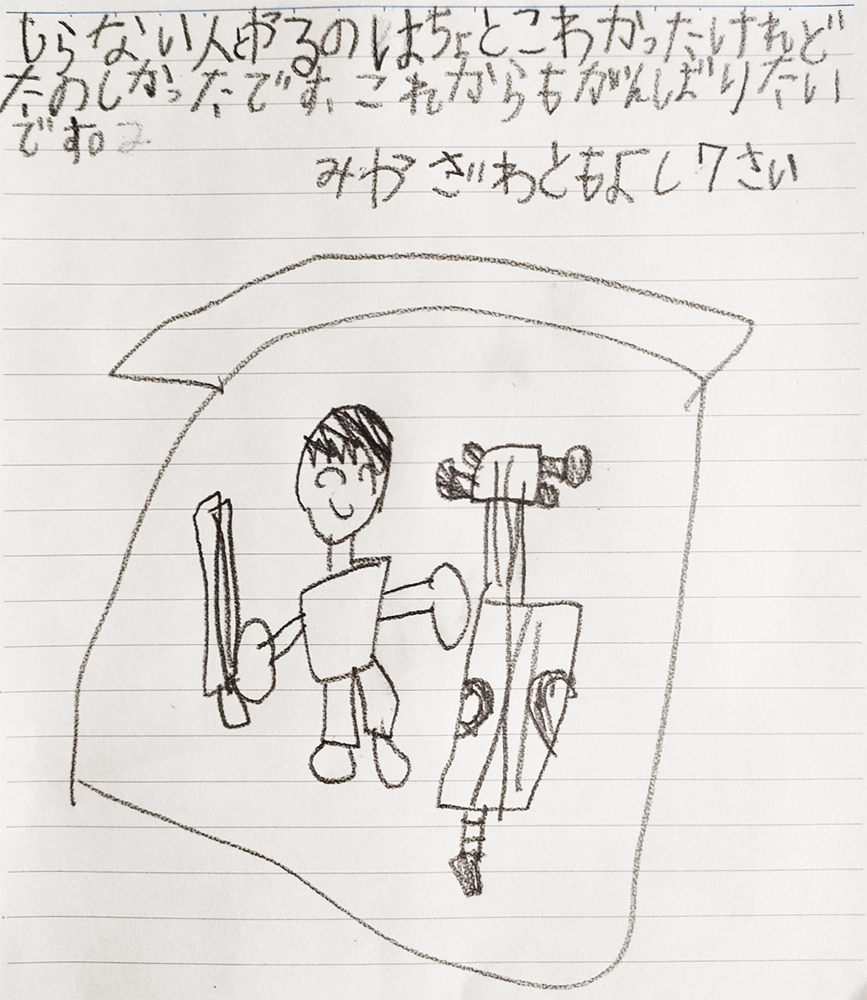 しらない人とやるのはちょとこわかったけれど
たのしかったです。これからもがんばりたい
です。
みやざわともよし7さい